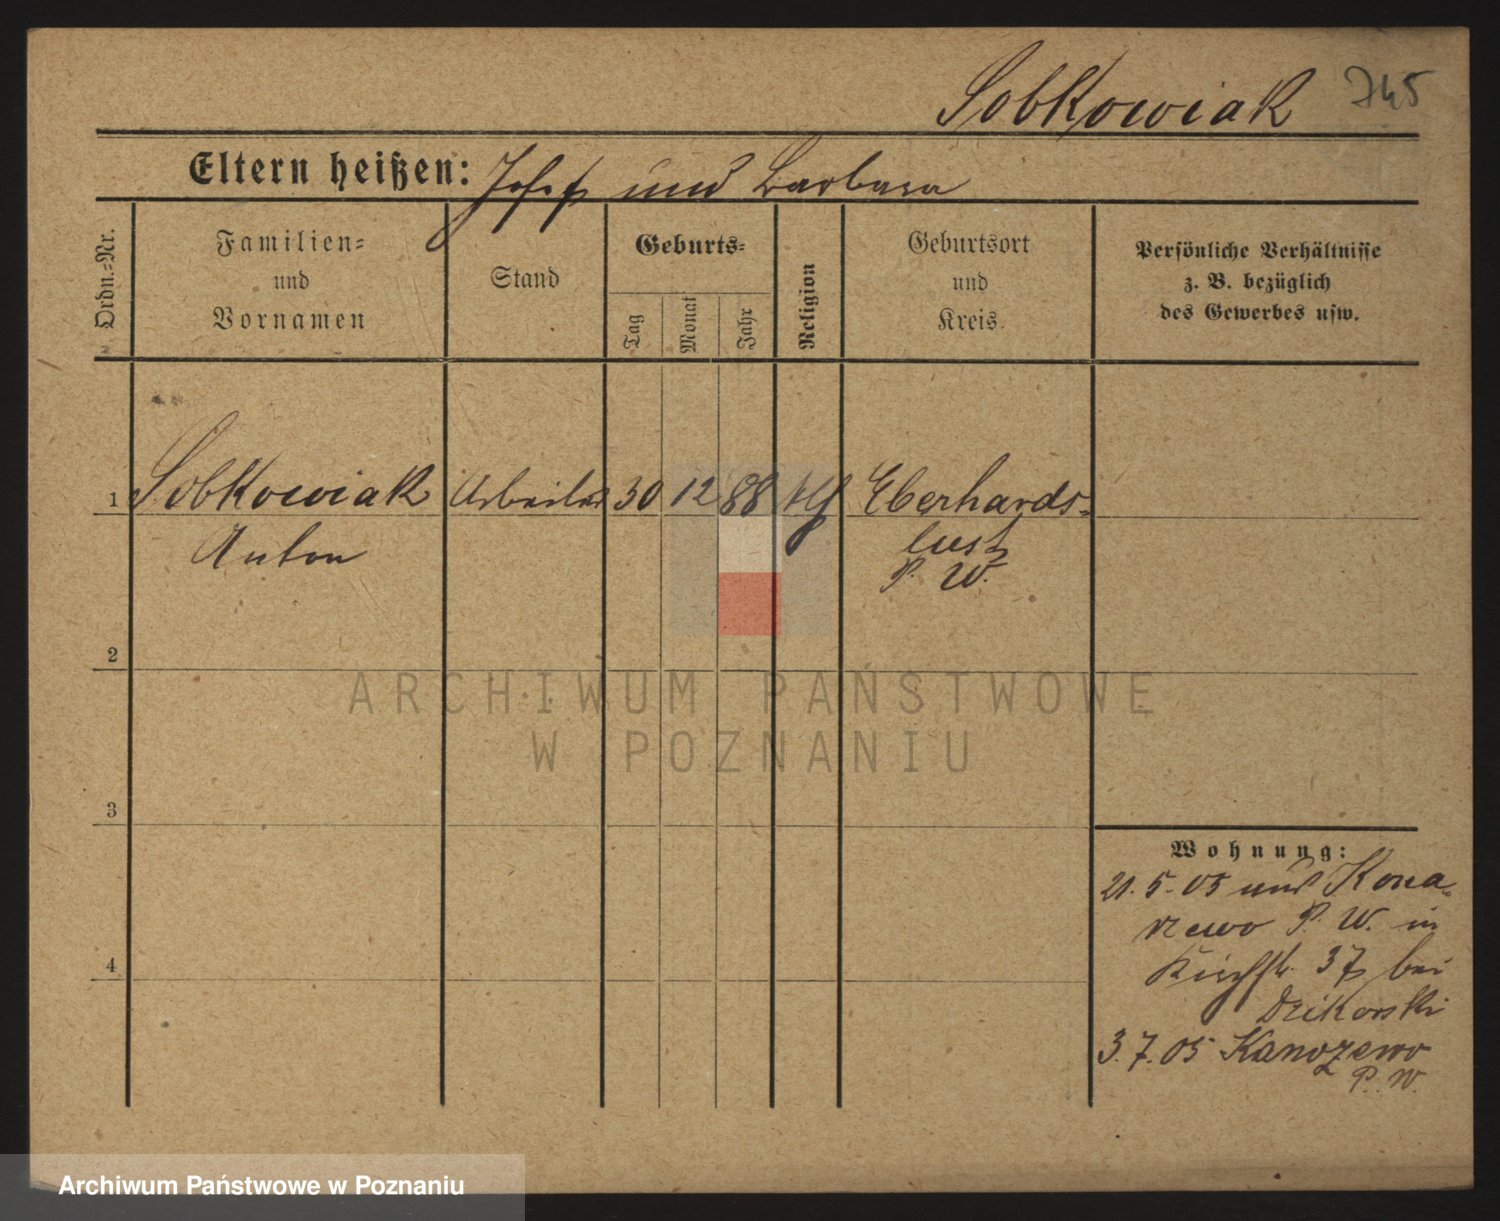 Sobkowiak 745
Eltern heißen: Josef und Barbara
Ordn.-Nr.
Familien-
und
Vornamen
Stand
Geburts-
Tag
Monat
Jahr
Religion
Geburtsort
und
Kreis.
Persönliche Verhältnisse
z. B. bezüglich
des Gewerbes usw.
1 Sobkowiak Arbeiter 30 12 88 Eberhards-
Anton lust
P. W.
2
ARCHIWUM PAŃSTWOWE
W POZNANIU
3
Wohnung:
21.5.05 aus Kona-
rzewo P. W. in
Kirchstr. 37 bei
Dzikorski
4
3.7.05 Kanozewo
P. W.
Archiwum Państwowe w Poznaniu